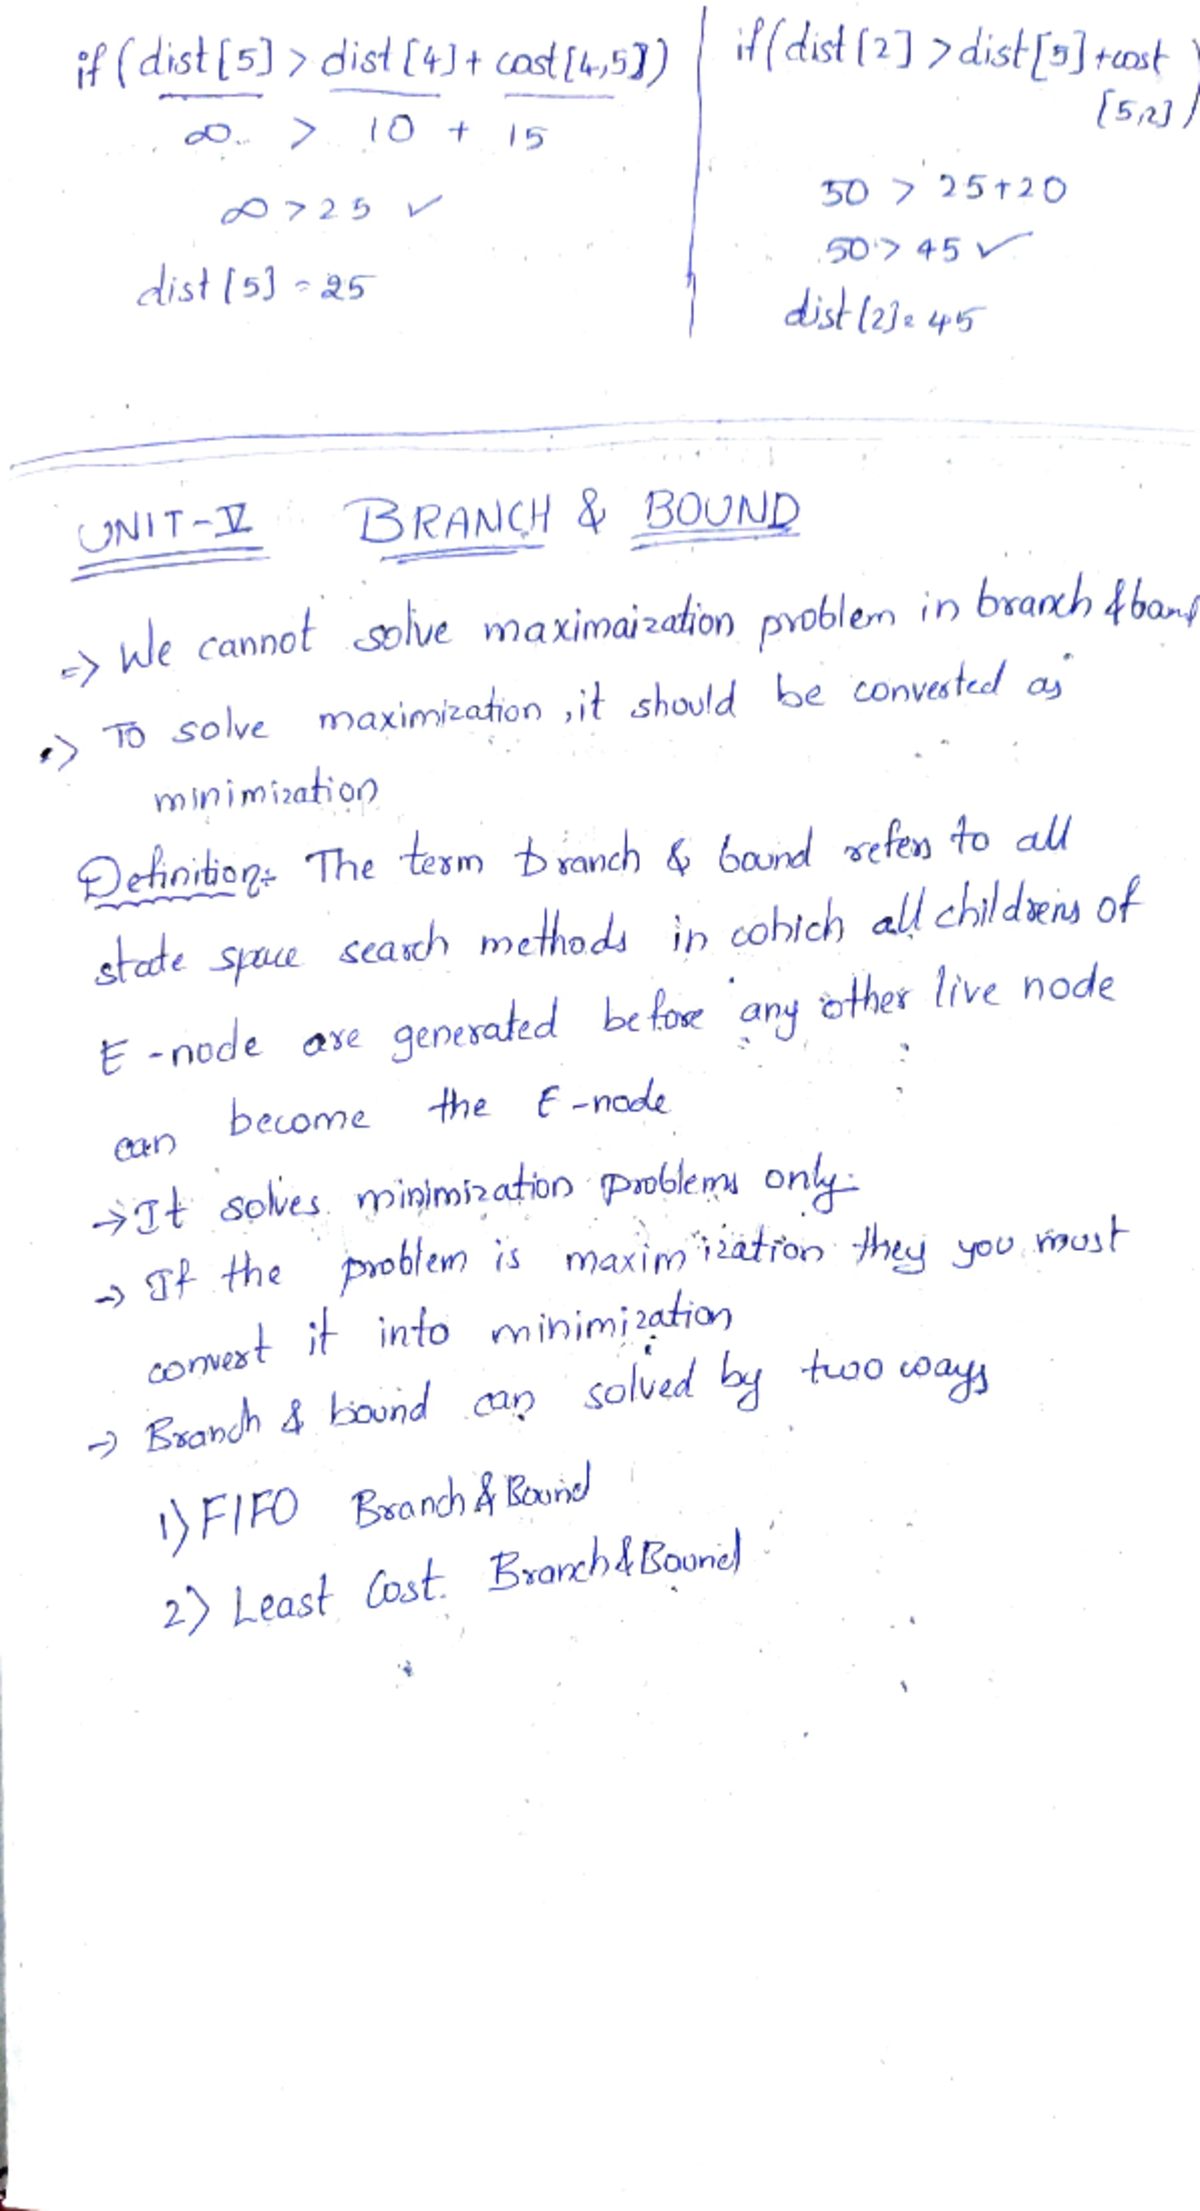 if (dist[5] > dist[4] + cost[4,5])
∞ > 10 + 15
∞ > 25 ✓
dist[5] = 25
if (dist[2] > dist[5] + cost
[5,2])
50 > 25+20
50 > 45 ✓
dist[2] = 45
UNIT-V BRANCH & BOUND
=> We cannot solve maximaization problem in branch & band
=> To solve maximization, it should be converted as
minimization
Definition:- The term branch & bound refers to all
state space search methods in which all childrens of
E-node are generated before any other live node
can become the E-node
→ It solves minimization problems only.
→ If the problem is maximization they you must
convert it into minimization
→ Branch & bound can solved by two ways
1) FIFO Branch & Bound
2) Least Cost. Branch & Bound